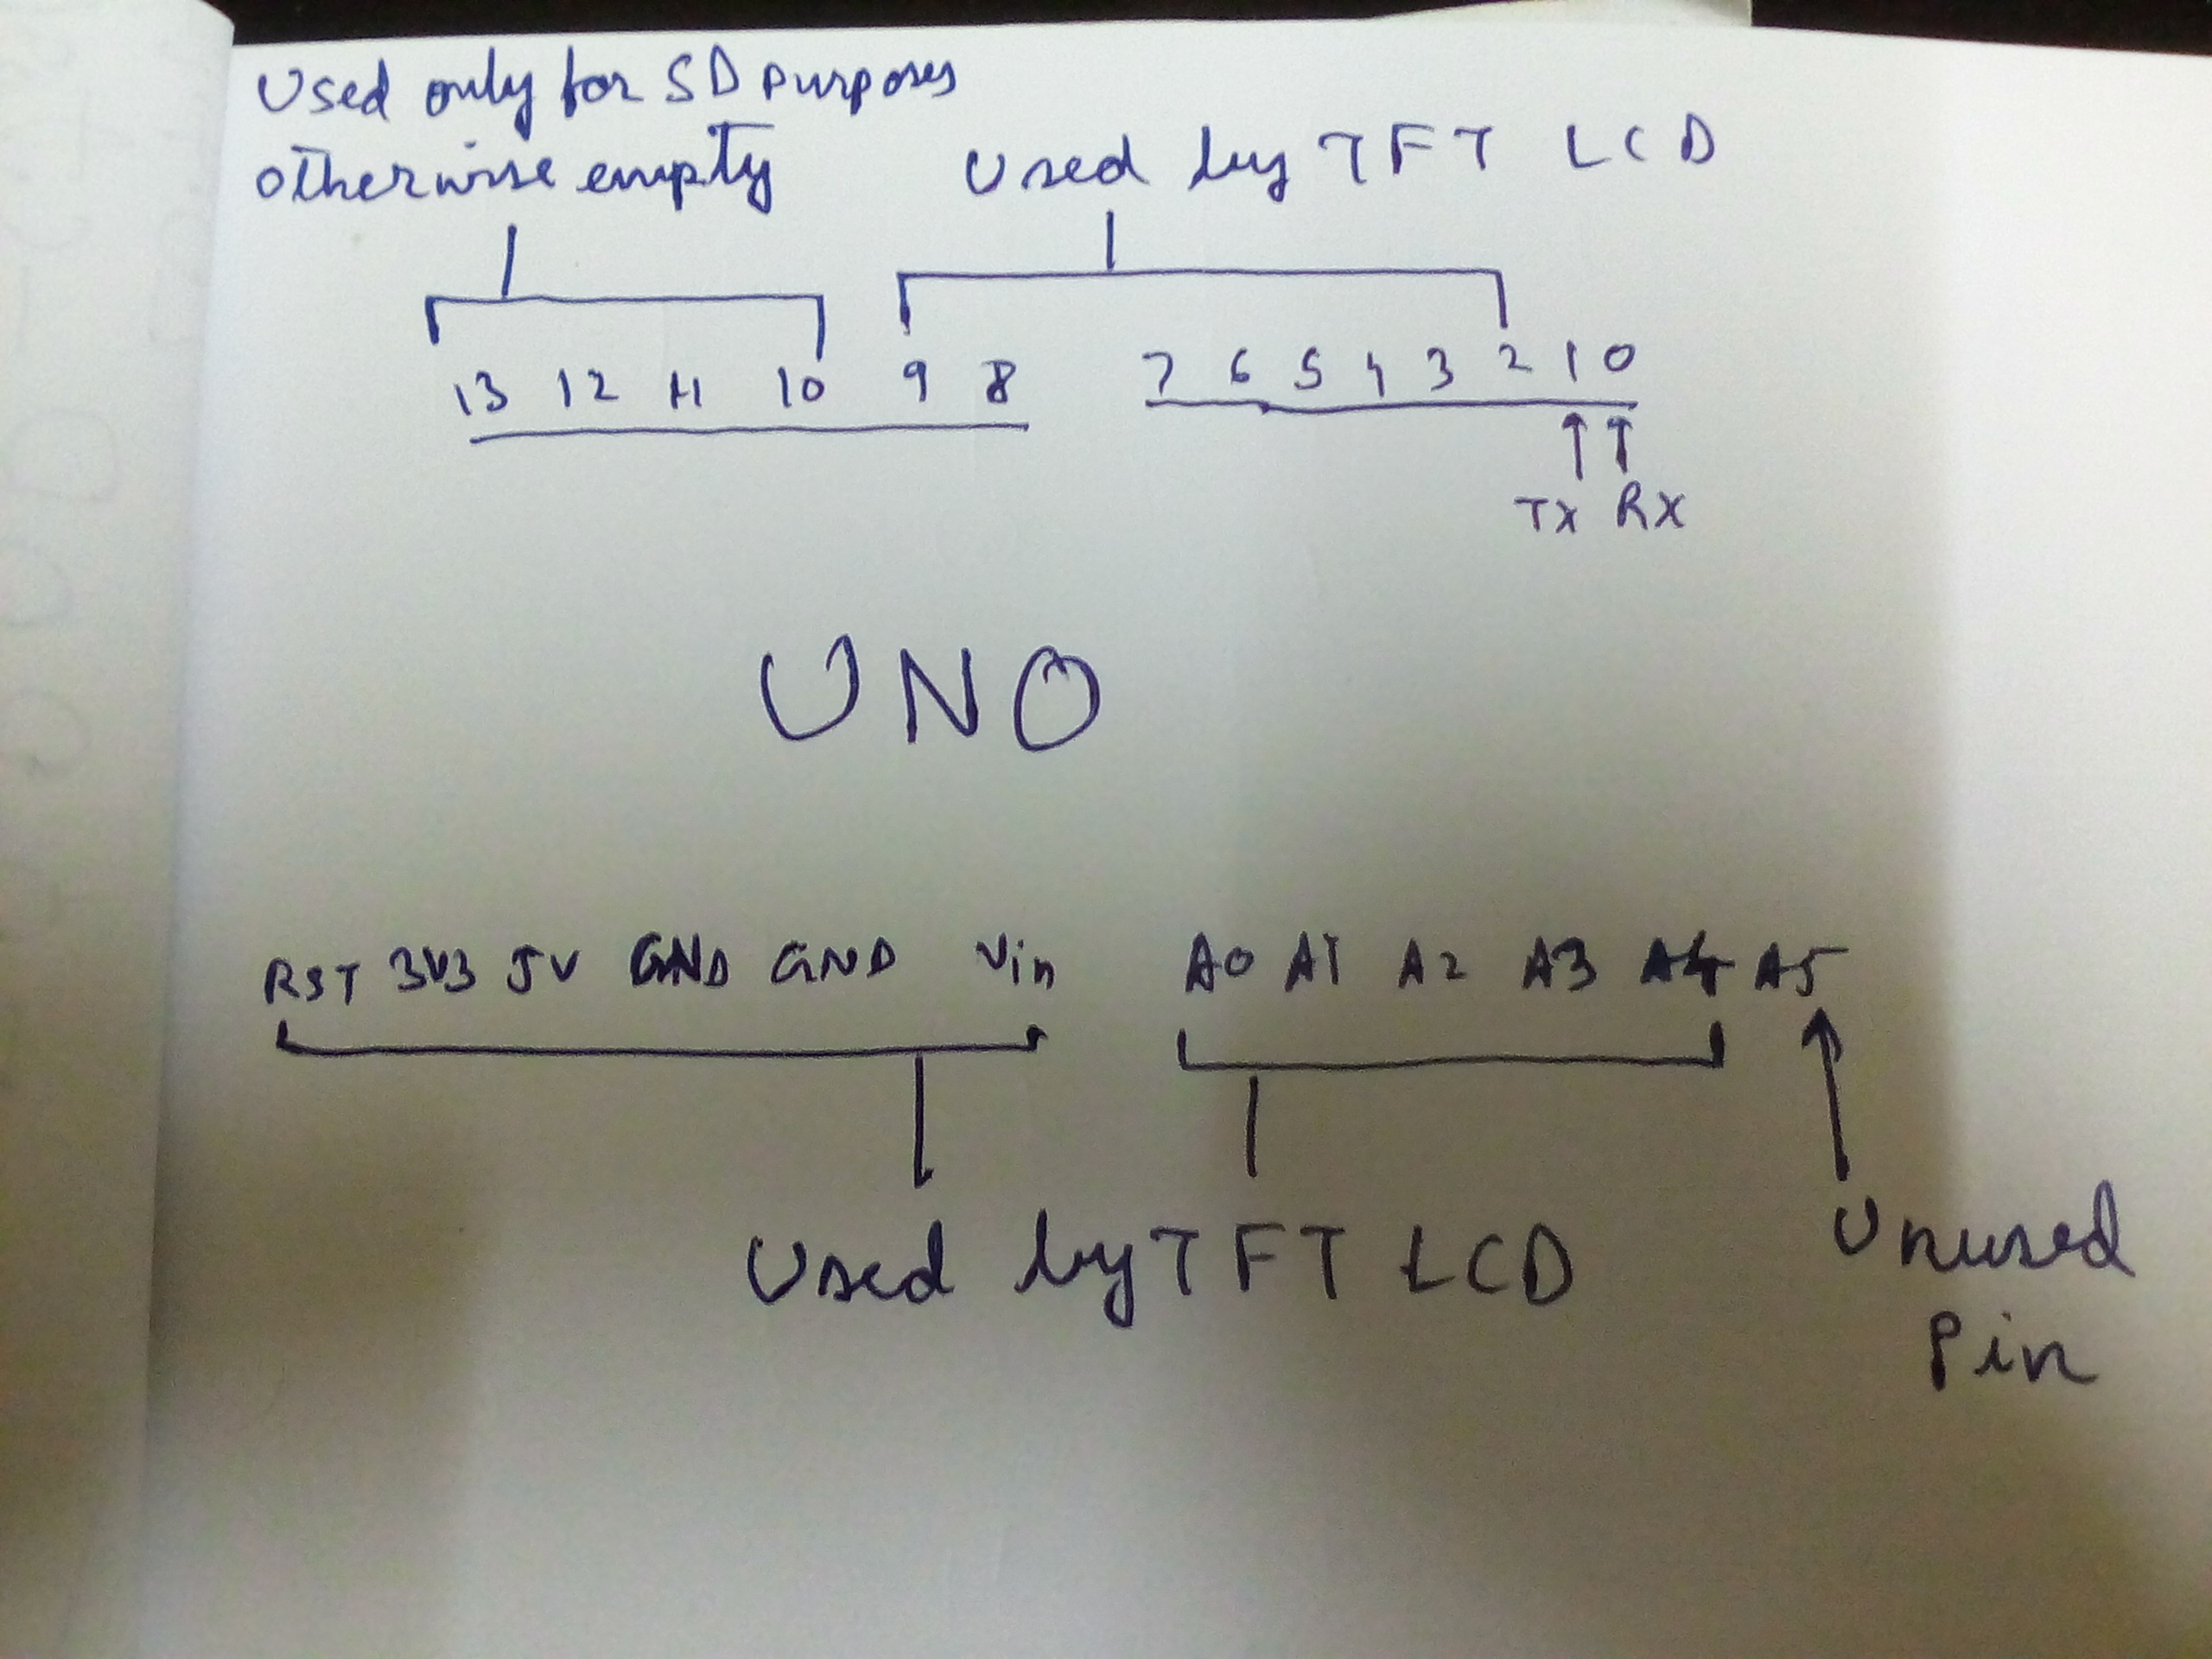 Used only for SD purposes
otherwise empty
Used by TFT LCD
13 12 11 10 9 8 7 6 5 4 3 2 1 0
TX RX
UNO
RST 3V3 5V GND GND Vin A0 A1 A2 A3 A4 A5
Used by TFT LCD
Unused
Pin